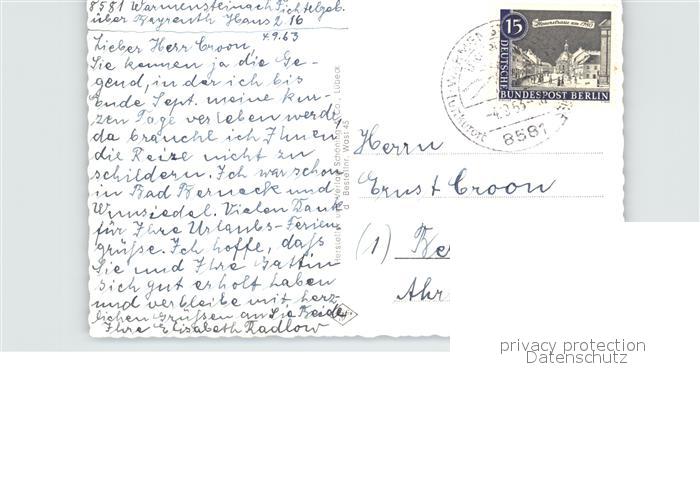 8581 Warmensteinach Fichtelgeb.
über Bayreuth Haus 2.16
4.9.63
Lieber Herr Croon,
Sie kennen ja die Ge-
gend, in der ich bis
Ende Sept. meine kur-
zen Tage verleben werde,
da brauche ich Ihnen
die Reize nicht zu
schildern. Ich war schon
in Bad Berneck und
Wunsiedel. Vielen Dank
für Ihre Urlaubs-Ferien
grüße. Ich hoffe, daß
Sie und Ihre Gattin
sich gut erholt haben
und verbleibe mit herz-
lichen Grüßen an Sie Beide
Ihre Elisabeth Radlow
Hersteller und Verlag Schöning & Co., Lübeck
Bestellnr. Wast 45
15
DEUTSCHE
BUNDESPOST BERLIN
8581
Herrn
Ernst Croon
(1) Be
Ahr
privacy protection
Datenschutz